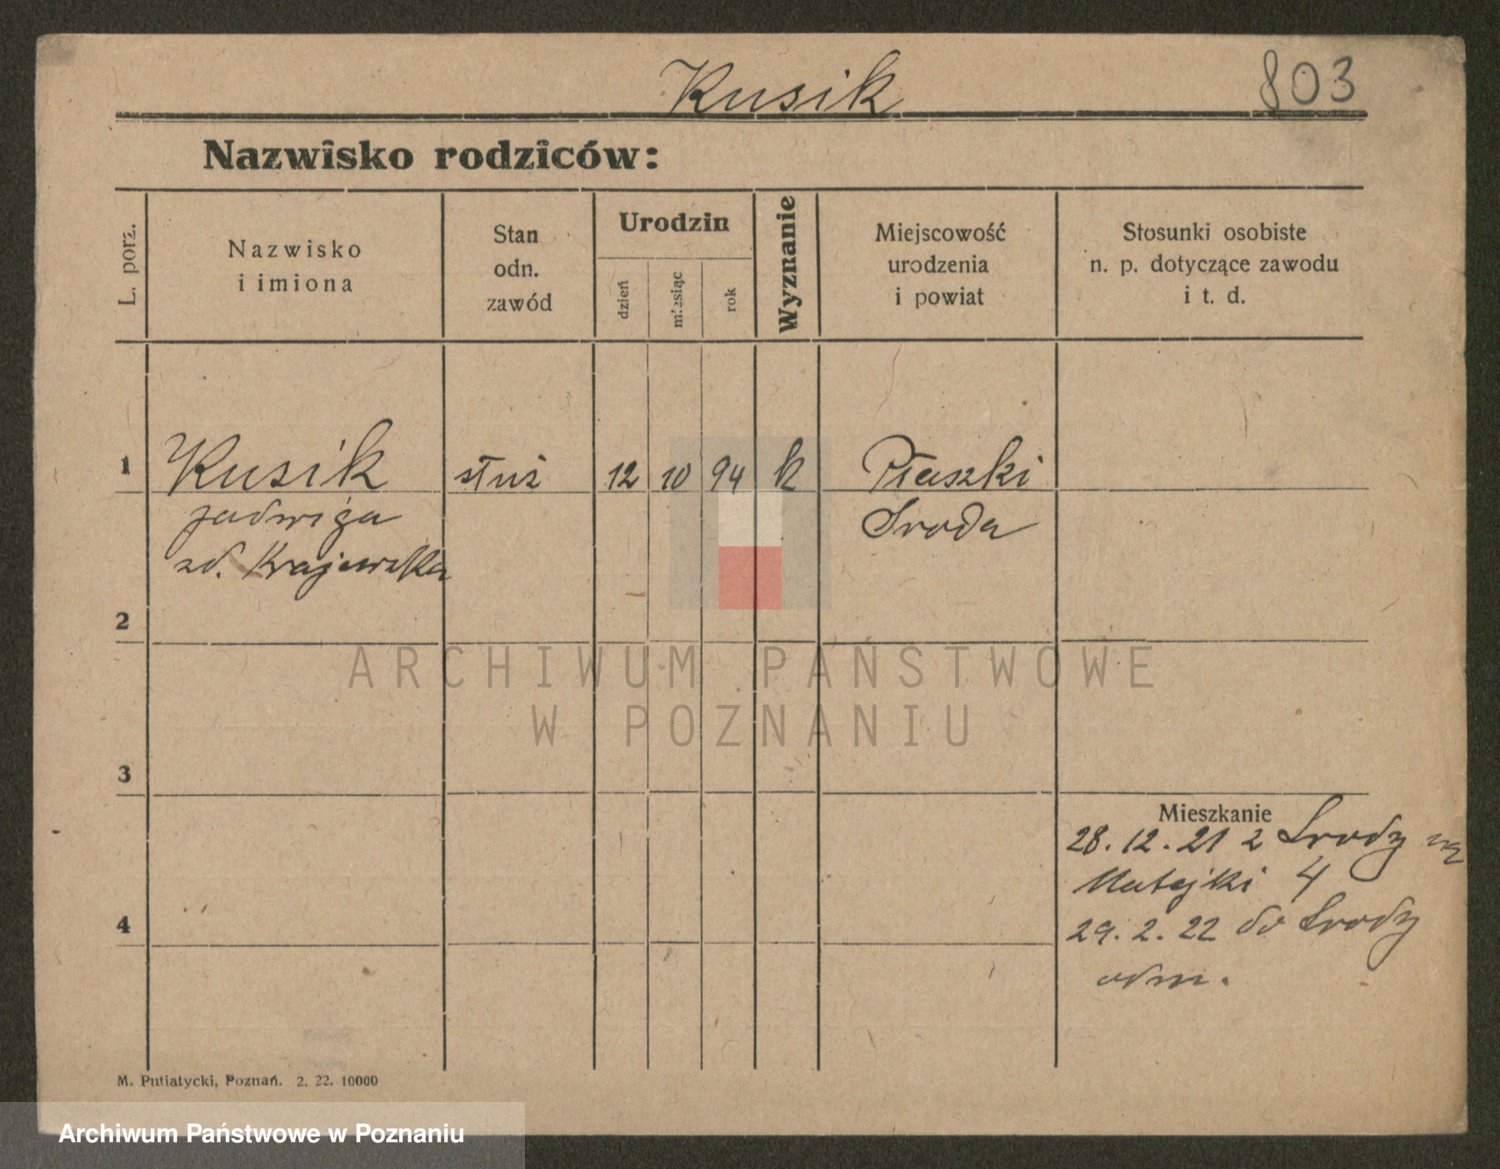 Kusik 803
Nazwisko rodziców:
L. porz.
Nazwisko
i imiona
Stan
odn.
zawód
Urodzin
dzień
miesiąc
rok
Wyznanie
Miejscowość
urodzenia
i powiat
Stosunki osobiste
n. p. dotyczące zawodu
i t. d.
1 Kusik służ 12 10 94 k Płaszki
Jadwiga Sroda
zd. Krajewska
2
3
4
Mieszkanie
28. 12. 21 z Srody na
Matejki 4
29. 2. 22 do Srody
odm.
M. Putiatycki, Poznań. 2. 22. 10000
ARCHIWUM PAŃSTWOWE
W POZNANIU
Archiwum Państwowe w Poznaniu